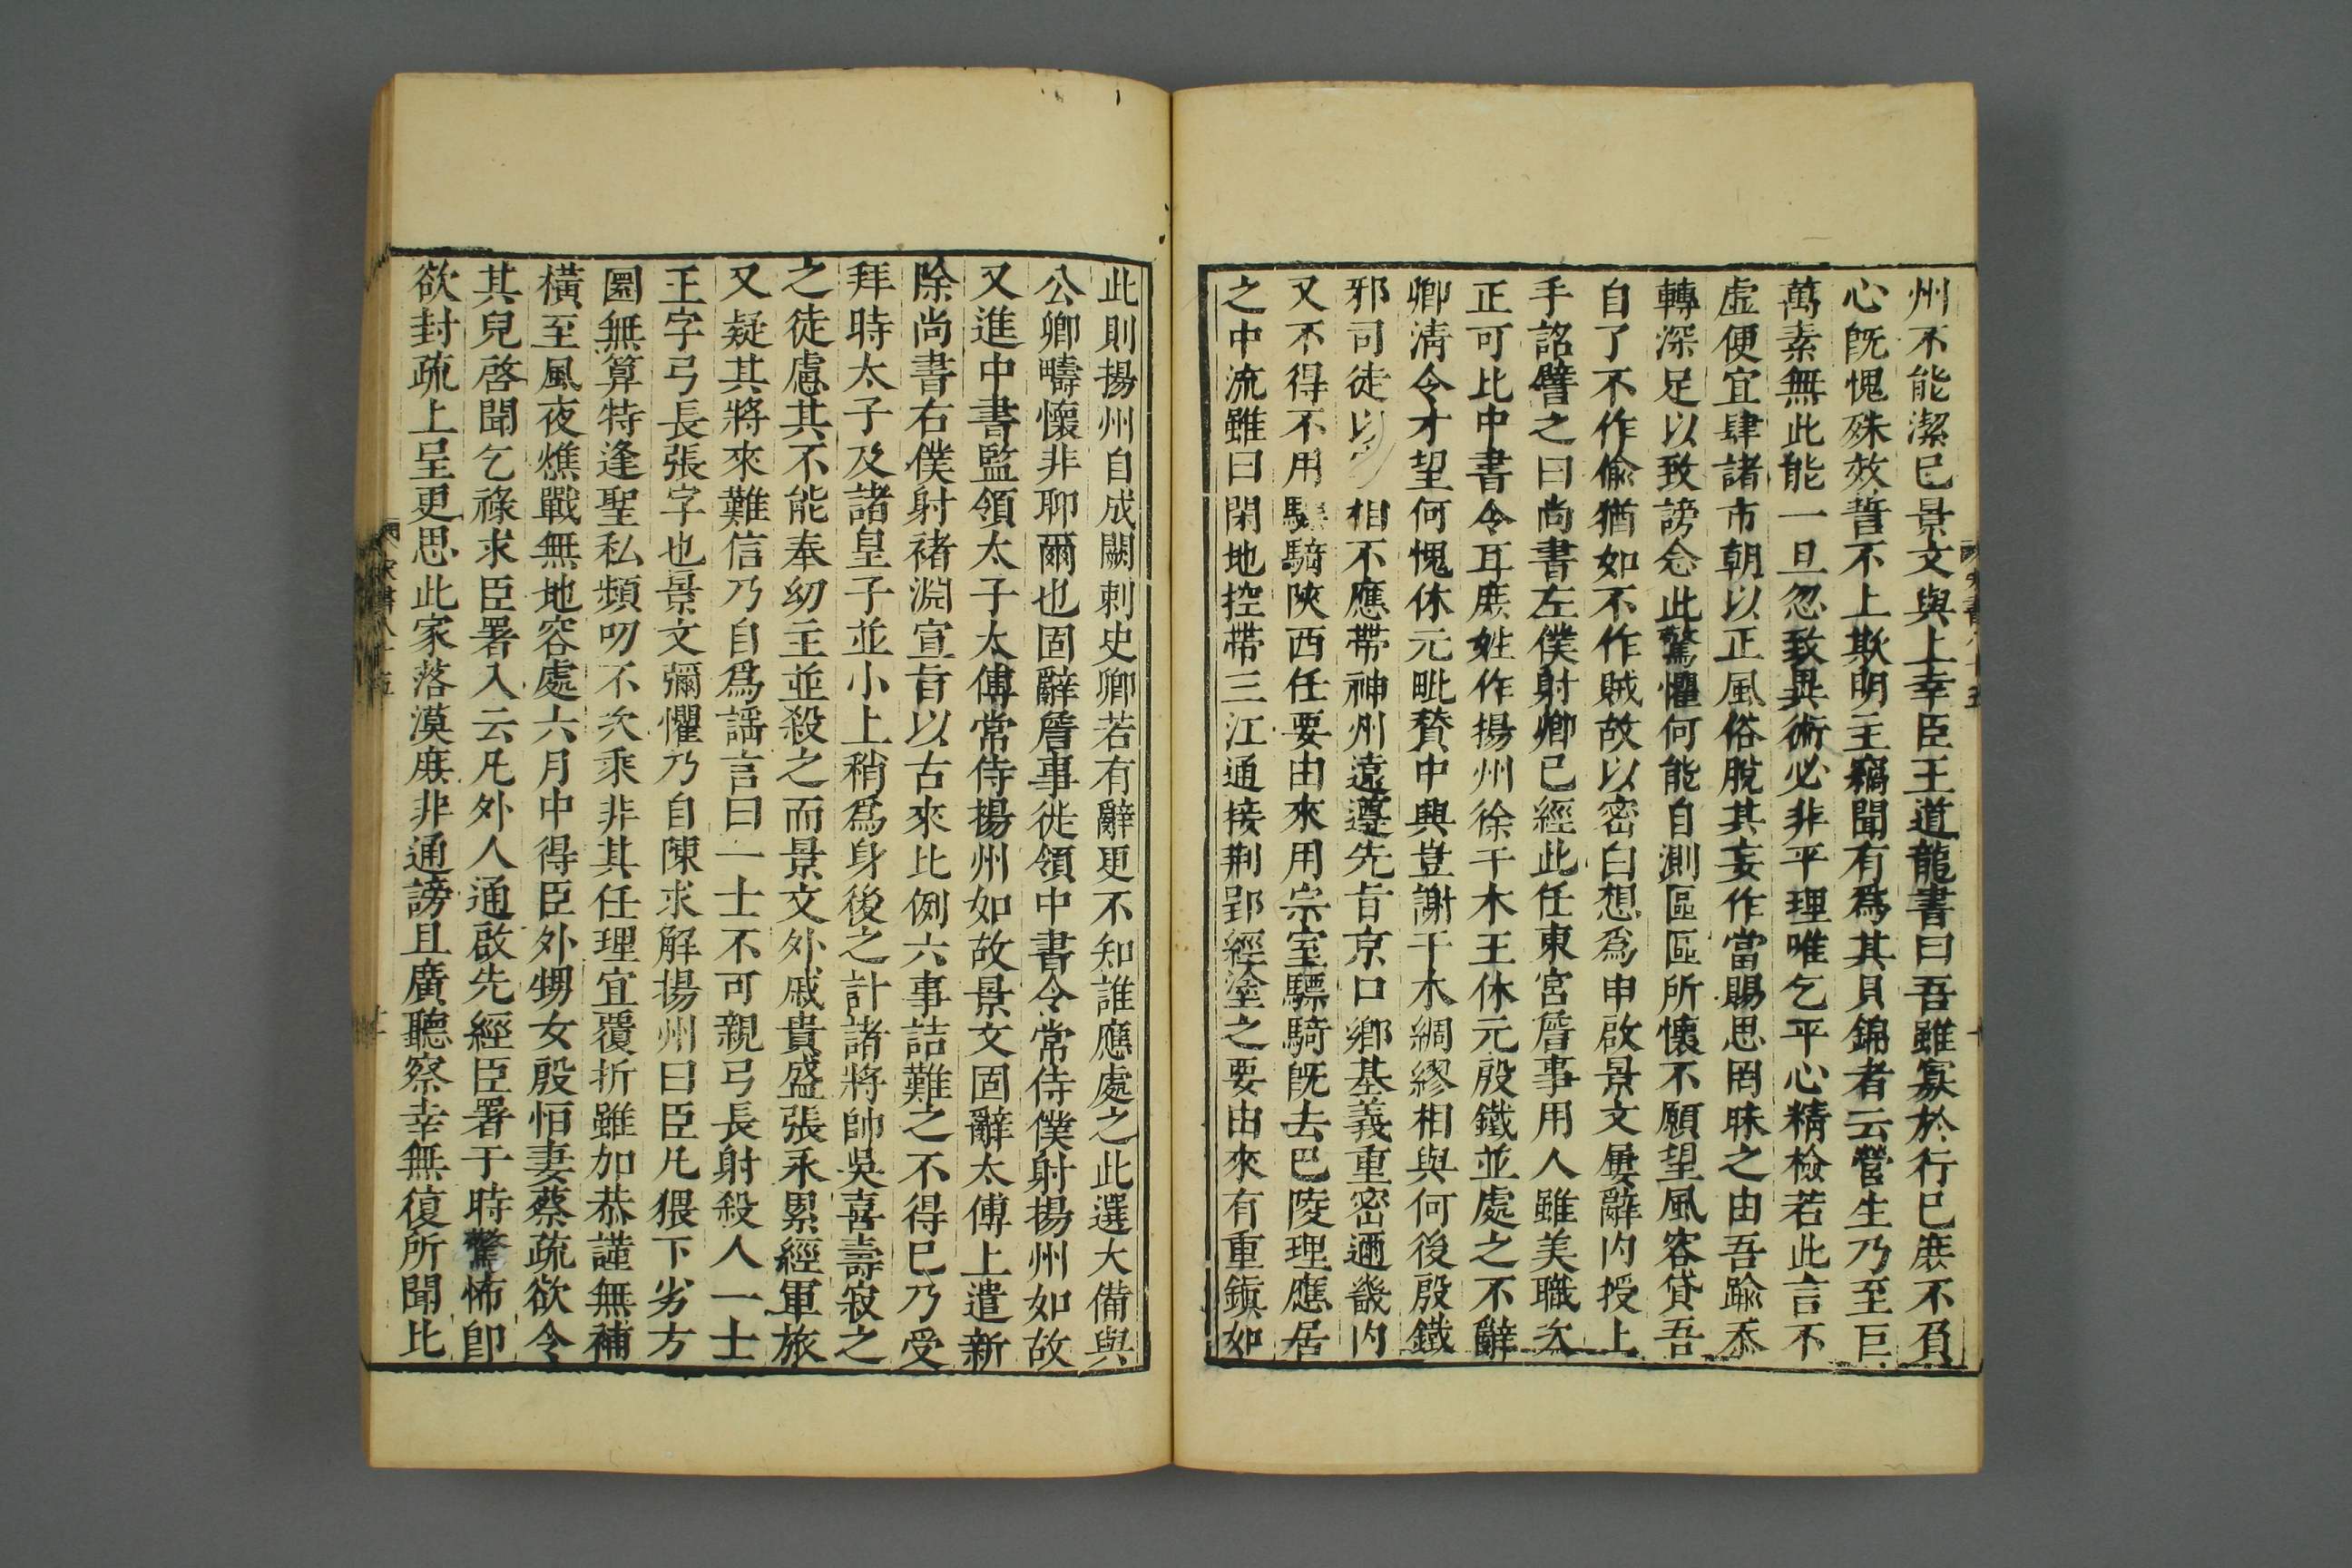 州不能潔已景文與上幸臣王道龍書曰吾雖寡於行已庶不負
心旣愧殊效誓不上欺明主竊聞有爲其貝錦者云營生乃至巨
萬素無此能一旦忽致異術必非平理唯乞平心精檢若此言不
虛便宜肆諸市朝以正風俗脫其妄作當賜思罔昧之由吾踰忝
轉深足以致謗念此驚懼何能自測區區所懷不願望風容貸吾
自了不作偷猶如不作賊故以密白想爲申啟景文屢辭內授上
手詔譬之曰尚書左僕射卿已經此任東宮詹事用人雖美職次
正可比中書令耳庶姓作揚州徐干木王休元殷鐵並處之不辭
卿清令才望何愧休元毗贊中興豈謝干木綢繆相與何後殷鐵
邪司徒以相不應帶神州遠遵先旨京口鄉基義重密邇畿內
又不得不用驃騎陝西任要由來用宗室驃騎旣去巴陵理應居
之中流雖曰閑地控帶三江通接荆郢經塗之要由來有重鎭如
此則揚州自成闕刺史卿若有辭更不知誰應處之此選大備與
公卿疇懷非聊爾也固辭詹事徙領中書令常侍僕射揚州如故
又進中書監領太子太傅常侍揚州如故景文固辭太傅上遣新
除尚書右僕射褚淵宣旨以古來比例六事詰難之不得已乃受
拜時太子及諸皇子並小上稍爲身後之計諸將帥吳喜壽寂之
之徒慮其不能奉幼主並殺之而景文外戚貴盛張永累經軍旅
又疑其將來難信乃自爲謡言曰一士不可親弓長射殺人一士
王字弓長張字也景文彌懼乃自陳求解揚州曰臣凡猥下劣方
圜無算特逢聖私頻叨不次乘非其任理宜覆折雖加恭謹無補
橫至風夜燋戰無地容處六月中得臣外甥女殷恒妻蔡疏欲令
其兒啓聞乞祿求臣署入云凡外人通啟先經臣署于時驚怖卽
欲封疏上呈更思此家落漠庶非通謗且廣聽察幸無復所聞比